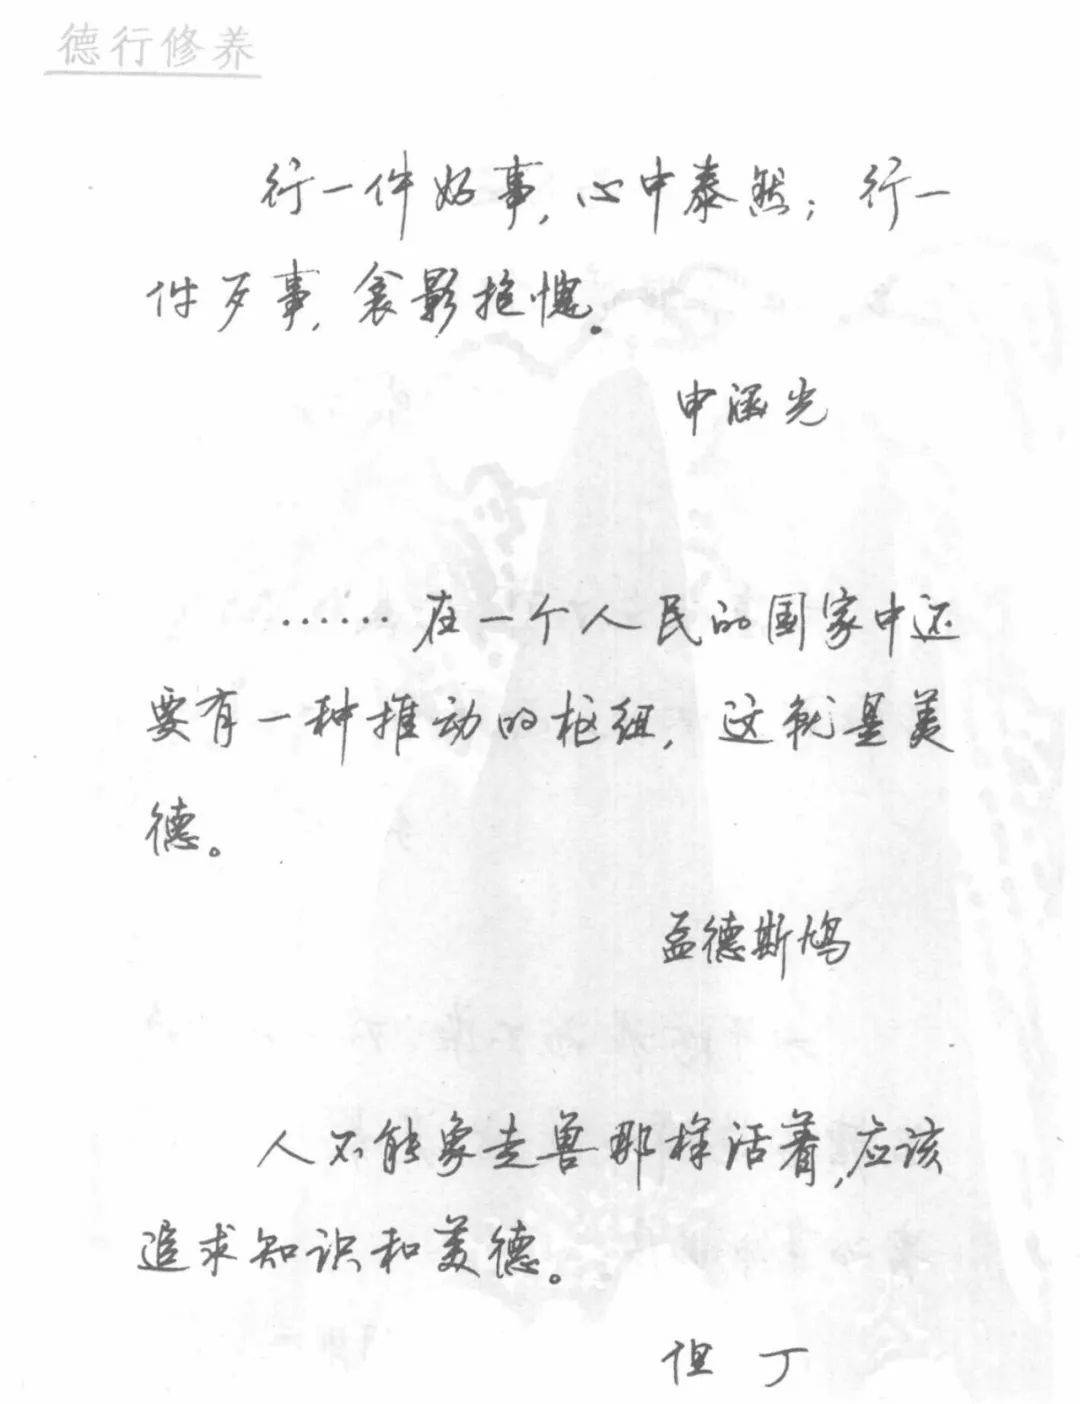 德行修养
行一件好事,心中泰然;行一
件歹事,衾影抱愧。
申涵光
……在一个人民的国家中还
要有一种推动的枢纽,这就是美
德。
孟德斯鸠
人不能象走兽那样活着,应该
追求知识和美德。
但丁